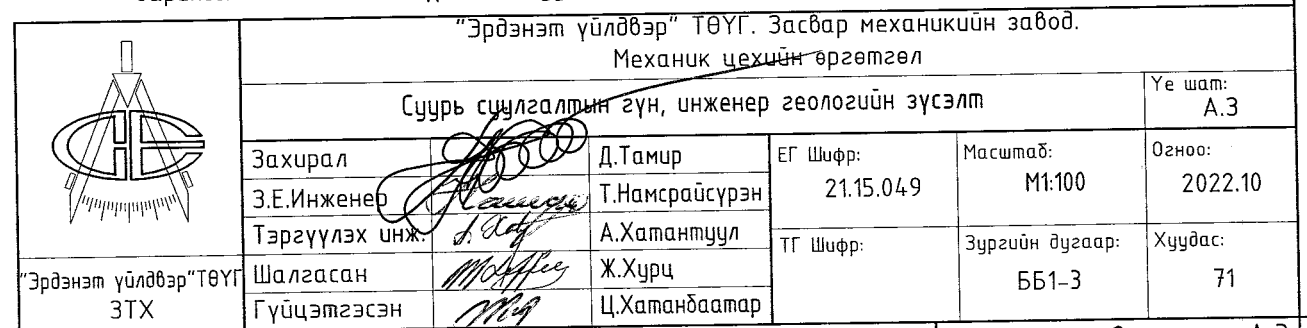 "Эрдэнэт үйлдвэр" ТӨҮГ. Засвар механикийн завод.
Механик цехийн өргөтгөл
Суурь суулгалтын гүн, инженер геологийн зүсэлт
Үе шат:
А.3
Захирал Д.Тамир
З.Е.Инженер Т.Намсрайсүрэн
Тэргүүлэх инж. А.Хатантуул
Шалгасан Ж.Хурц
Гүйцэтгэсэн Ц.Хатанбаатар
ЕГ Шифр:
21.15.049
Масштаб:
М1:100
Огноо:
2022.10
ТГ Шифр:
Зургийн дугаар:
ББ1-3
Хуудас:
71
"Эрдэнэт үйлдвэр"ТӨҮГ
ЗТХ